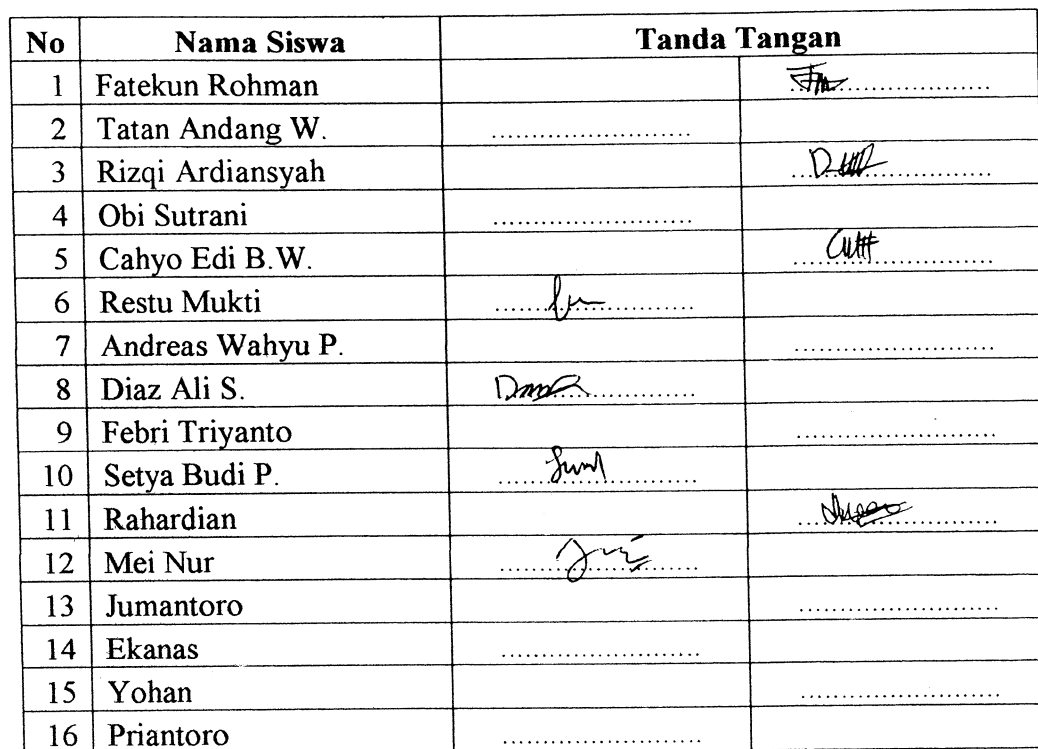 No Nama Siswa Tanda Tangan
1 Fatekun Rohman ........................
2 Tatan Andang W. ........................
3 Rizqi Ardiansyah ........................
4 Obi Sutrani ........................
5 Cahyo Edi B.W. ........................
6 Restu Mukti ........................
7 Andreas Wahyu P. ........................
8 Diaz Ali S. ........................
9 Febri Triyanto ........................
10 Setya Budi P. ........................
11 Rahardian ........................
12 Mei Nur ........................
13 Jumantoro ........................
14 Ekanas ........................
15 Yohan ........................
16 Priantoro ........................